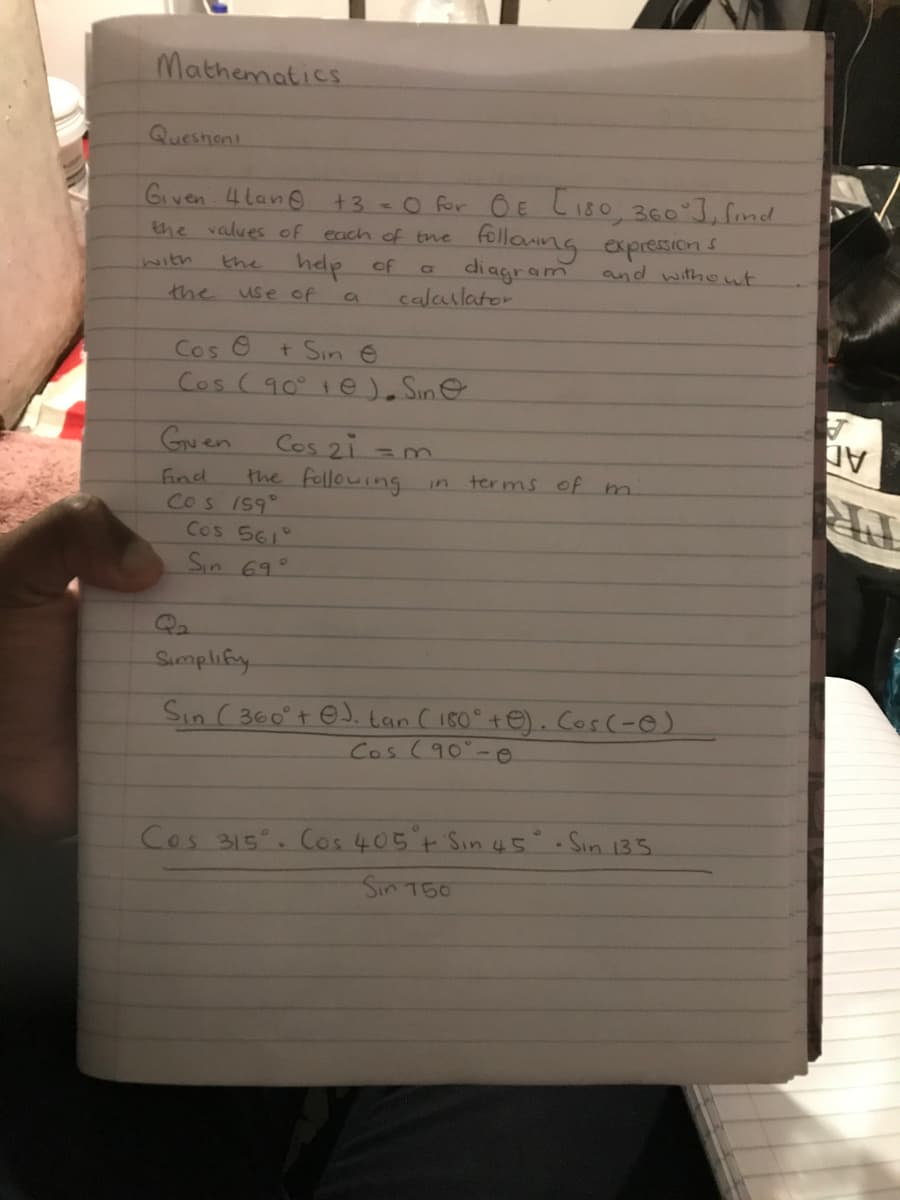 Mathematics
Question1
Given 4tanΘ +3 = 0 for ΘE [180, 360°], find
the values of each of the following expressions
with the help of a diagram and without
the use of a calculator
Cos Θ + Sin Θ
Cos (90° + Θ). SinΘ
Given Cos 21 = m
Find the following in terms of m
Cos 159°
Cos 561°
Sin 69°
Q2
Simplify
Sin (360° + Θ). tan (180° + Θ). Cos(-Θ)
Cos (90° - Θ
Cos 315°. Cos 405° + Sin 45°. Sin 135
Sin 750
AD
TR